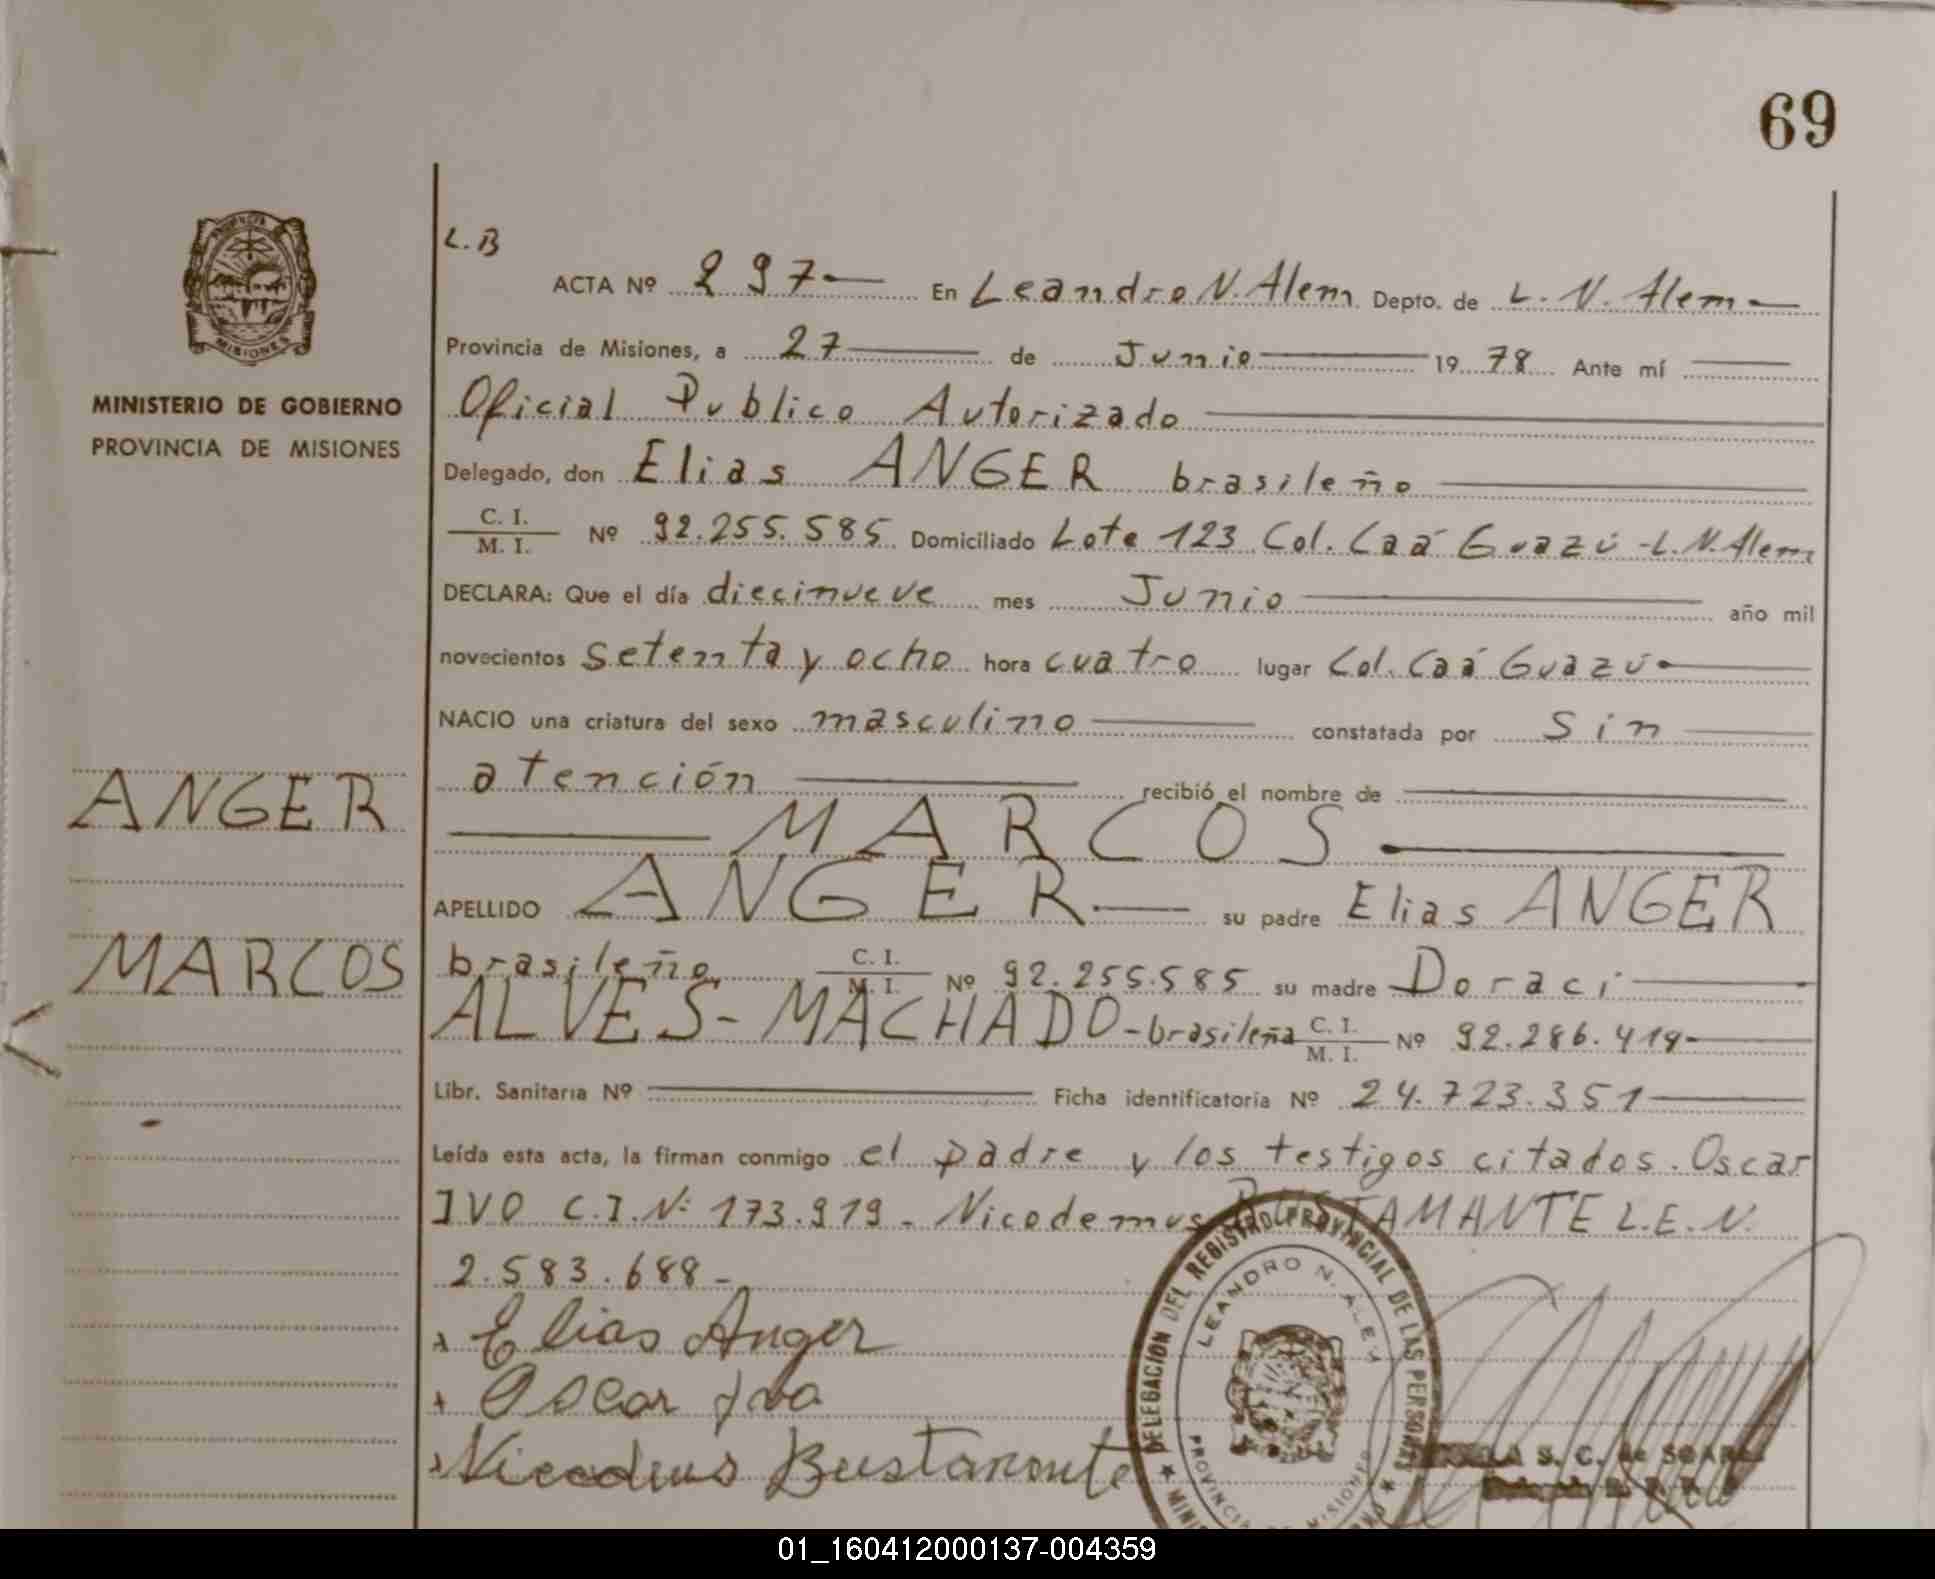 69
PROVINCIA
MISIONES
MINISTERIO DE GOBIERNO
PROVINCIA DE MISIONES
ANGER
MARCOS
L.B
ACTA Nº 297 En Leandro N. Alem Depto. de L. N. Alem
Provincia de Misiones, a 27 de Junio 1978 Ante mí
Oficial Publico Autorizado
Delegado, don Elias ANGER brasileño
C. I.
M. I. Nº 92.255.585 Domiciliado Lote 123 Col. Caá Guazú - L. N. Alem
DECLARA: Que el día diecinueve mes Junio año mil
novecientos setenta y ocho hora cuatro lugar Col. Caá Guazú
NACIO una criatura del sexo masculino constatada por Sin
atención recibió el nombre de
MARCOS
APELLIDO ANGER su padre Elias ANGER
brasileño C. I. M. I. Nº 92.255.585 su madre Doraci
ALVES - MACHADO - brasileña C. I. M. I. Nº 92.286.419
Libr. Sanitaria Nº Ficha identificatoria Nº 24.723.351
Leída esta acta, la firman conmigo el padre y los testigos citados. Oscar
IVO C.I.Nº 173.919 - Nicodemus BUSTAMANTE L.E.N.
2.583.688 -
Elias Anger
Oscar Ivo
Nicodemus Bustamante
DELEGACION DEL REGISTRO PROVINCIAL DE LAS PERSONAS
LEANDRO N. ALEM
PROVINCIA DE MISIONES
S. C. de SOARE
01_160412000137-004359